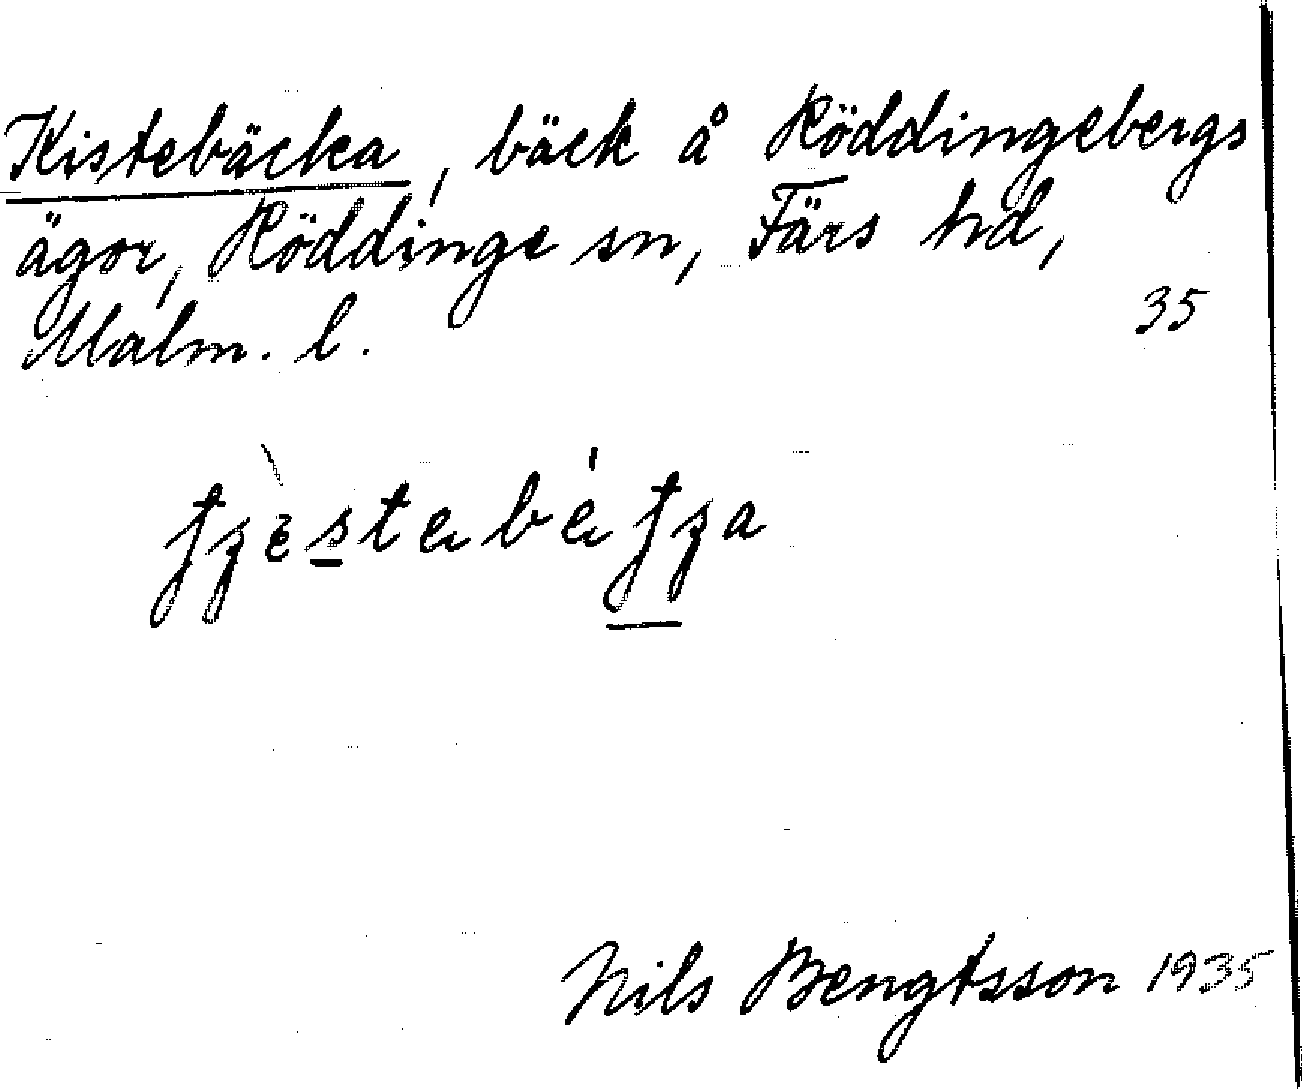 Kistebäcka, bäck å Röddingebergs
ägor, Röddinge sn, Färs hd,
Malm. l.
35
Nils Bengtsson 1935